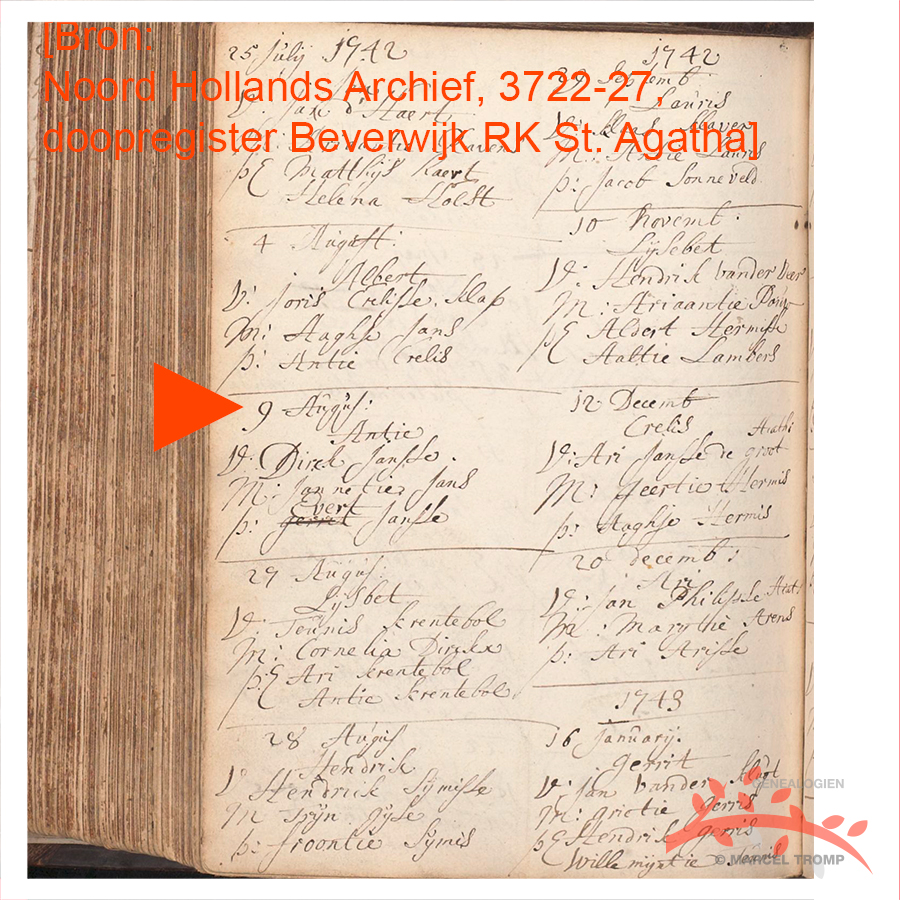 [Bron:
Noord Hollands Archief, 3722-27,
doopregister Beverwijk RK St. Agatha]
25 July 1742
V: Jan Kaert
pE Matthijs Kaert
Helena Holst
4 August:
Albert
V: Joris Crelisse Klap
M: Aaghje Jans
p: Antie Crelis
9 Augus:
Antie
V: Dirck Jansse.
M: Jannetie Jans
Evert
p: gerrit Jansse
29 Augus:
Lijsbet
V: Teunis Krentebol
M: Cornelia Dirckx
p:E Ari Krentebol
Antie Krentebol
28 Augus
Hendrik
V: Hendrick Symisse
M Tryn Gijse
p: Froontie Symis
1742
Septemb
Lauris
V: Klaver
M: Antie Lauris
p: Jacob Sonneveld
10 Novemt:
Lijsebet
V: Hendrik vander Veer
M: Ariaantie
pE Aldert Hermisse
Aaltie Lambers
12 Decemt
Crelis
V: Ari Jansse de groot
M: Geertie Hermis
p: Aaghje Hermis
20 decemb:
Ari
V: Jan Philipse
M: Marythie Arens
p: Ari Arisse
1743
16 January.
gerrit
V: Jan vander
M: grietie gerris
pE Hendrik gerris
Willemijntie
GENEALOGIEN
© MARCEL TROMP